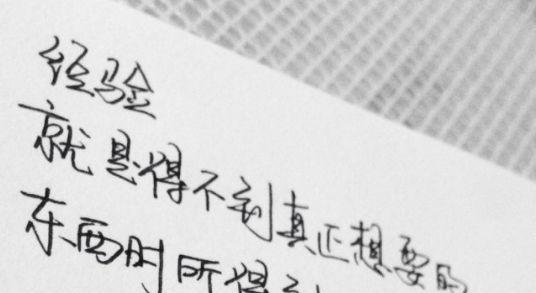 经验
就是得不到真正想要的
东西时所得到